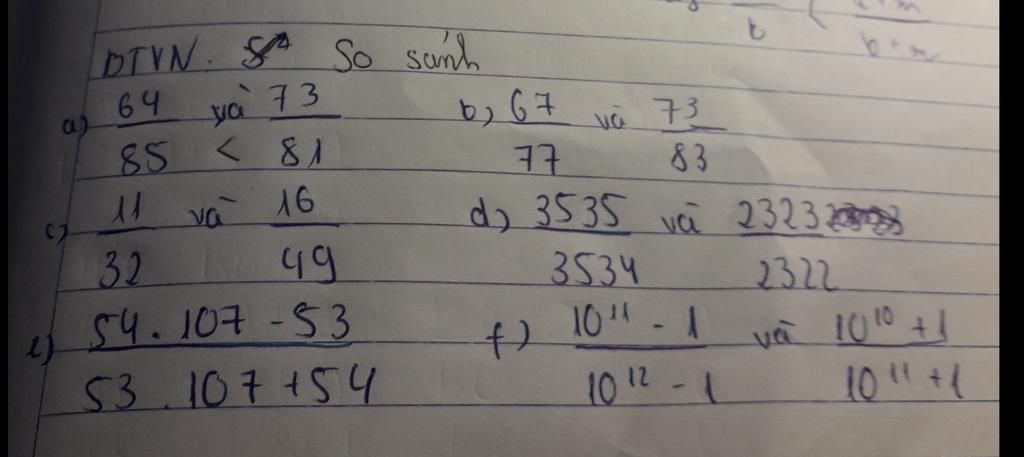 b < b+m
BTVN. So sánh
a) 64/85 và < 73/81 b) 67/77 và 73/83
c) 11/32 và 16/49 d) 3535/3534 và 2323/2322
e) 54.107-53/53.107+54 f) 10¹¹-1/10¹²-1 và 10¹⁰+1/10¹¹+1